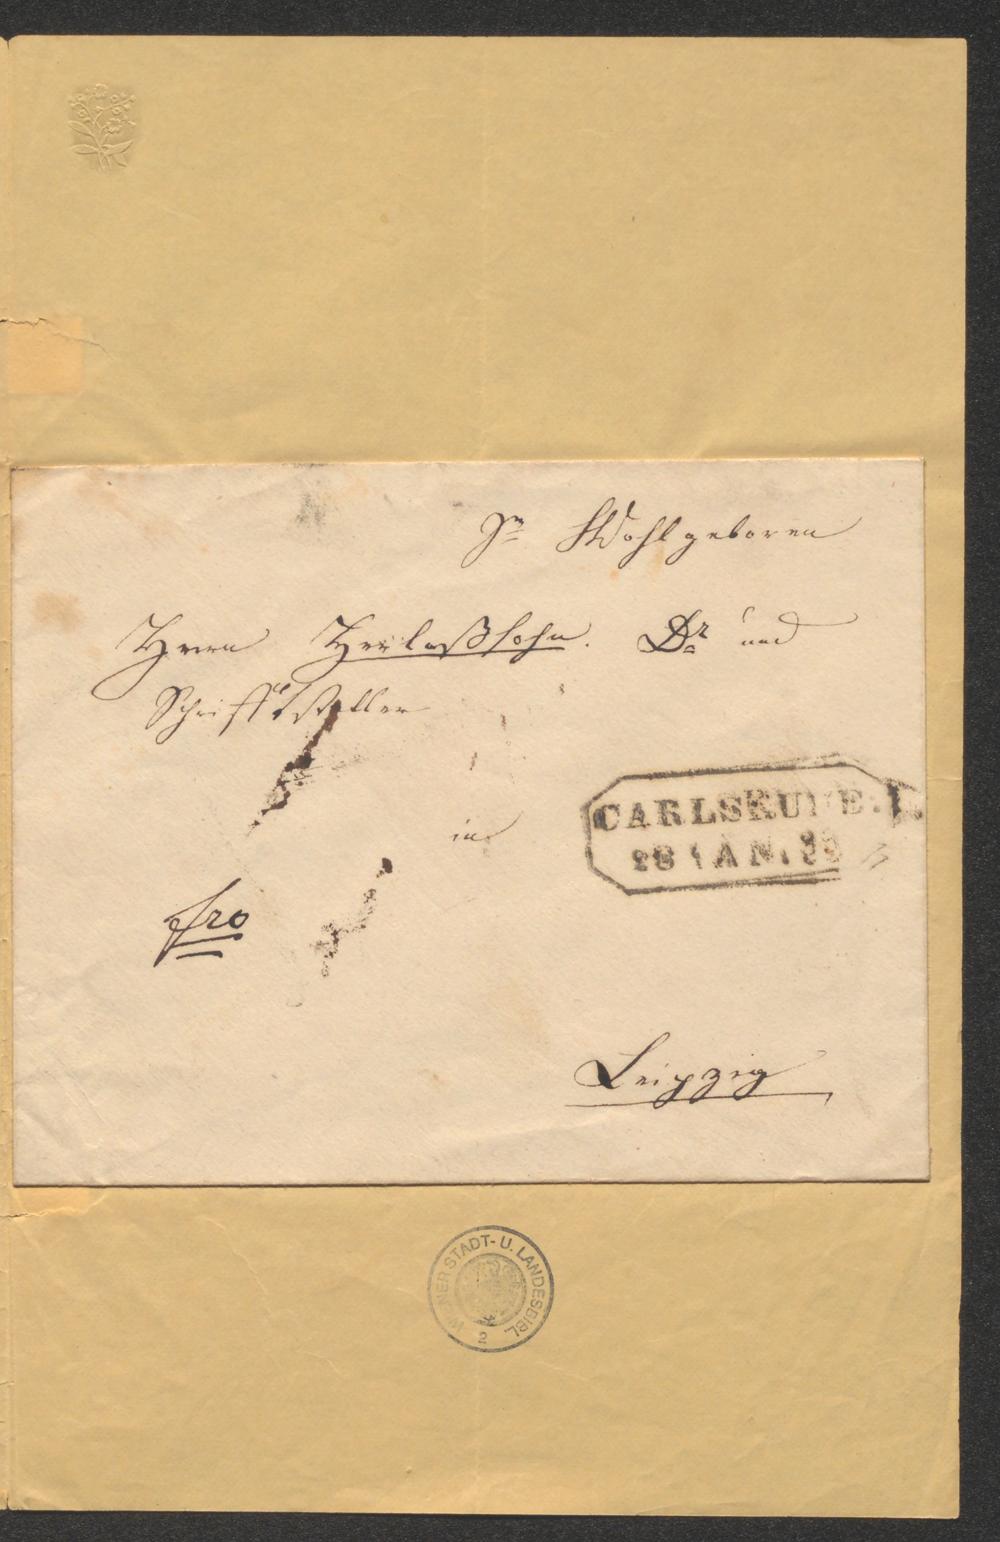 Sr Wohlgeboren
Herrn Herloßsohn. Dr und
Schriftsteller
in
CARLSRUHE.
28 IAN.
fro
Leipzig
WIENER STADT- U. LANDESBIBL.
2